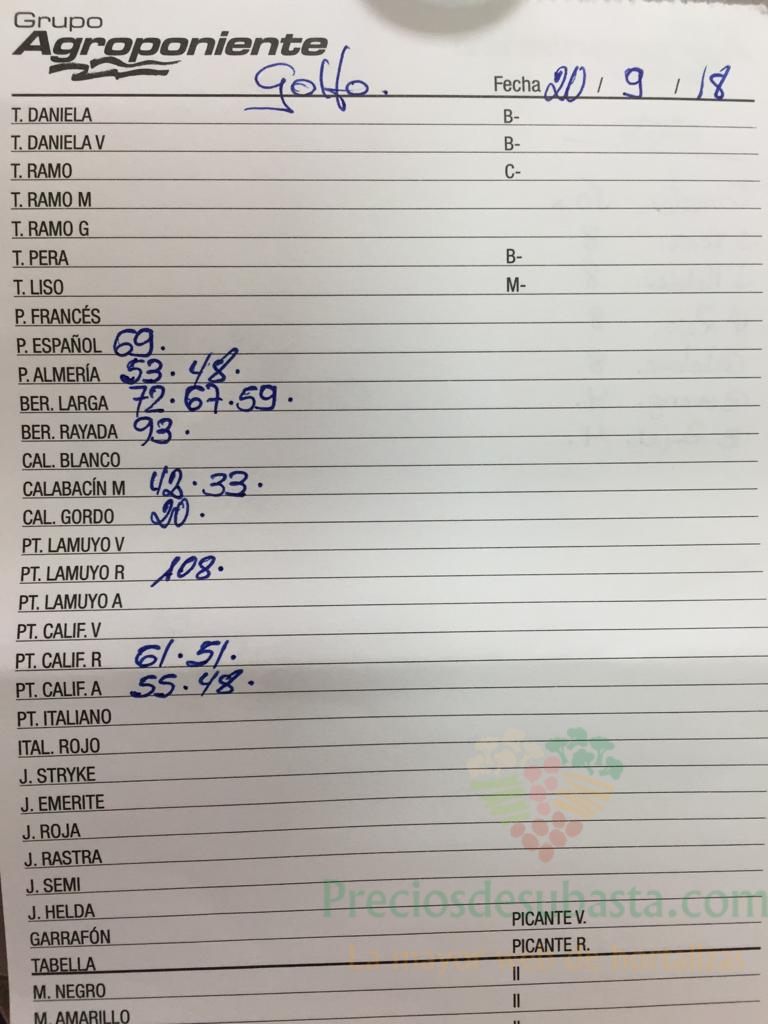 Grupo
Agroponiente
Golfo. Fecha 20 / 9 / 18
T. DANIELA B-
T. DANIELA V B-
T. RAMO C-
T. RAMO M
T. RAMO G
T. PERA B-
T. LISO M-
P. FRANCÉS
P. ESPAÑOL 69.
P. ALMERÍA 53. 48.
BER. LARGA 72. 67. 59.
BER. RAYADA 93.
CAL. BLANCO
CALABACÍN M 42. 33.
CAL. GORDO 20.
PT. LAMUYO V
PT. LAMUYO R 108.
PT. LAMUYO A
PT. CALIF. V
PT. CALIF. R 61. 51.
PT. CALIF. A 55. 48.
PT. ITALIANO
ITAL. ROJO
J. STRYKE
J. EMERITE
J. ROJA
J. RASTRA
J. SEMI
Preciosdesubasta.com
J. HELDA PICANTE V.
GARRAFÓN PICANTE R.
TABELLA II
M. NEGRO II
M. AMARILLO II